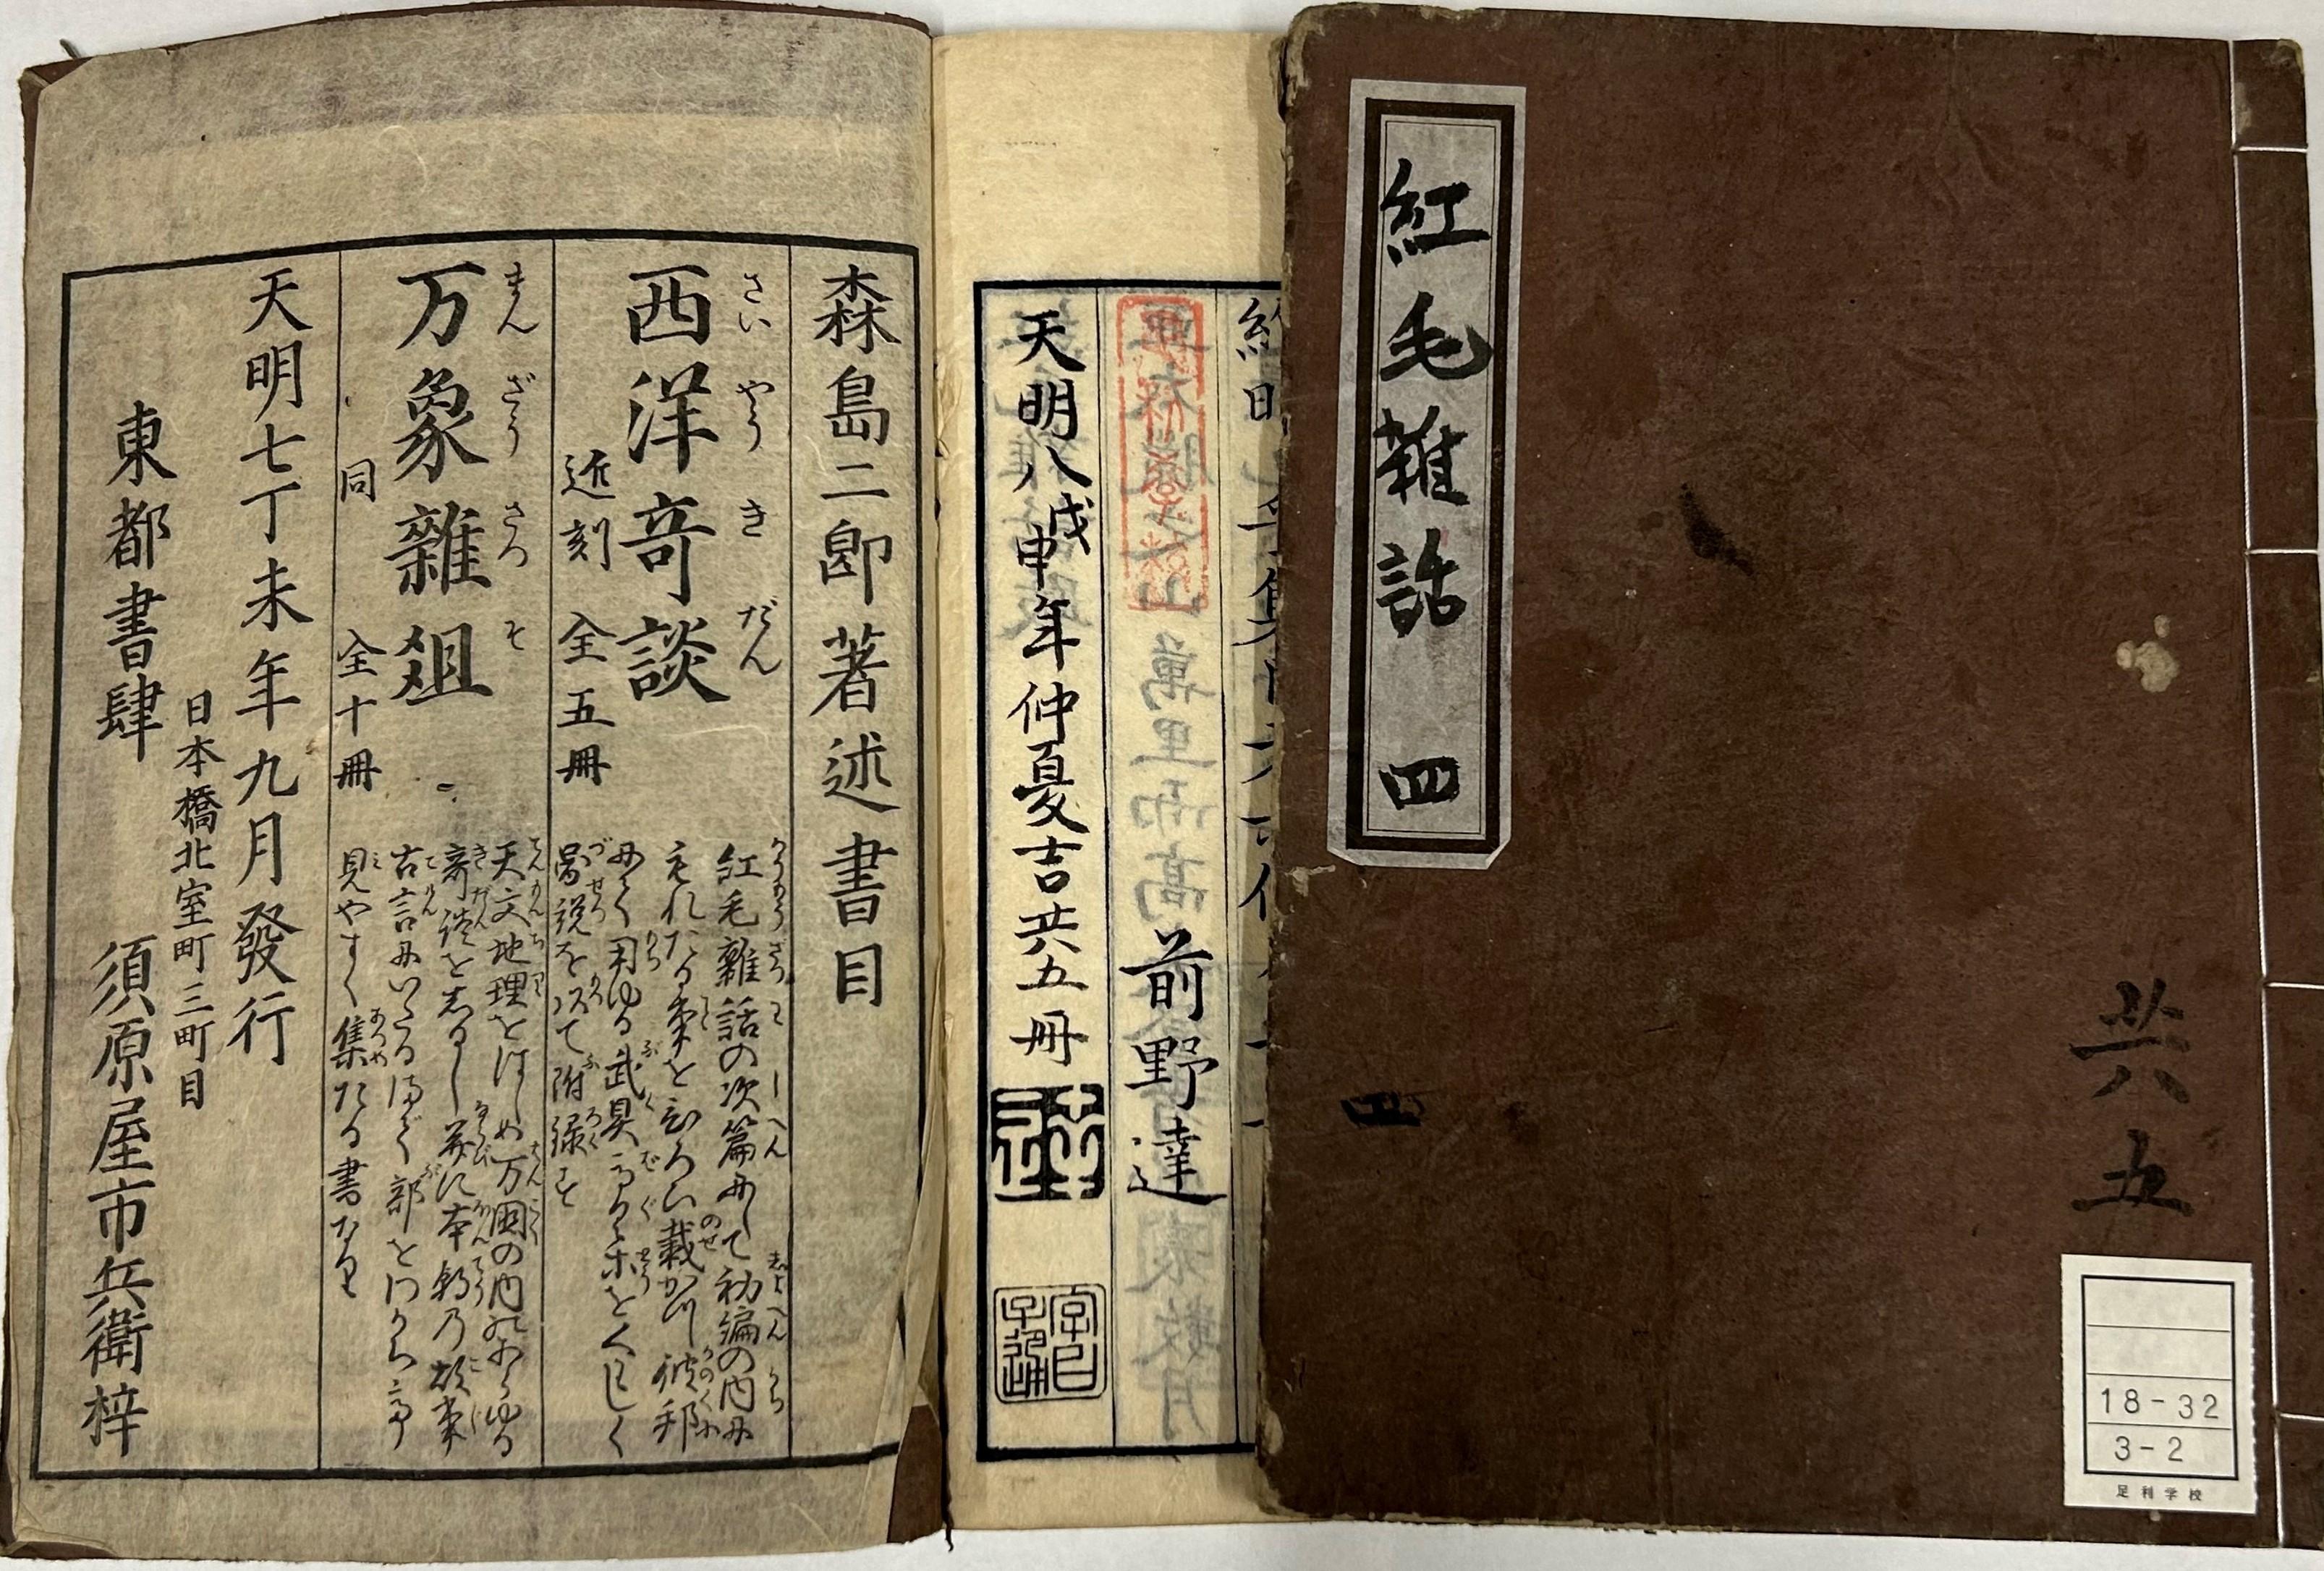 紅毛雜話 四
共五
四
18-32
3-2
足利学校
前野達
天明八戊申年仲夏吉共五冊
森島二郎著述書目
さい やう き だん
西洋奇談
近刻 全五冊
紅毛雜話の次篇にして初編の内に
もれたる事をひろひ載かつ彼邦
にて用ゆる武具馬具等をくはしく
圖説を以て附録す
まん ざう ざつ そ
万象雜爼
同 全十冊
天文地理をはじめ万国の内にあらゆる
奇談をしるし并に本朝乃故事
古言にいたるまで部をわかち
見やすく集たる書なり
天明七丁未年九月發行
日本橋北室町三町目
東都書肆 須原屋市兵衛梓